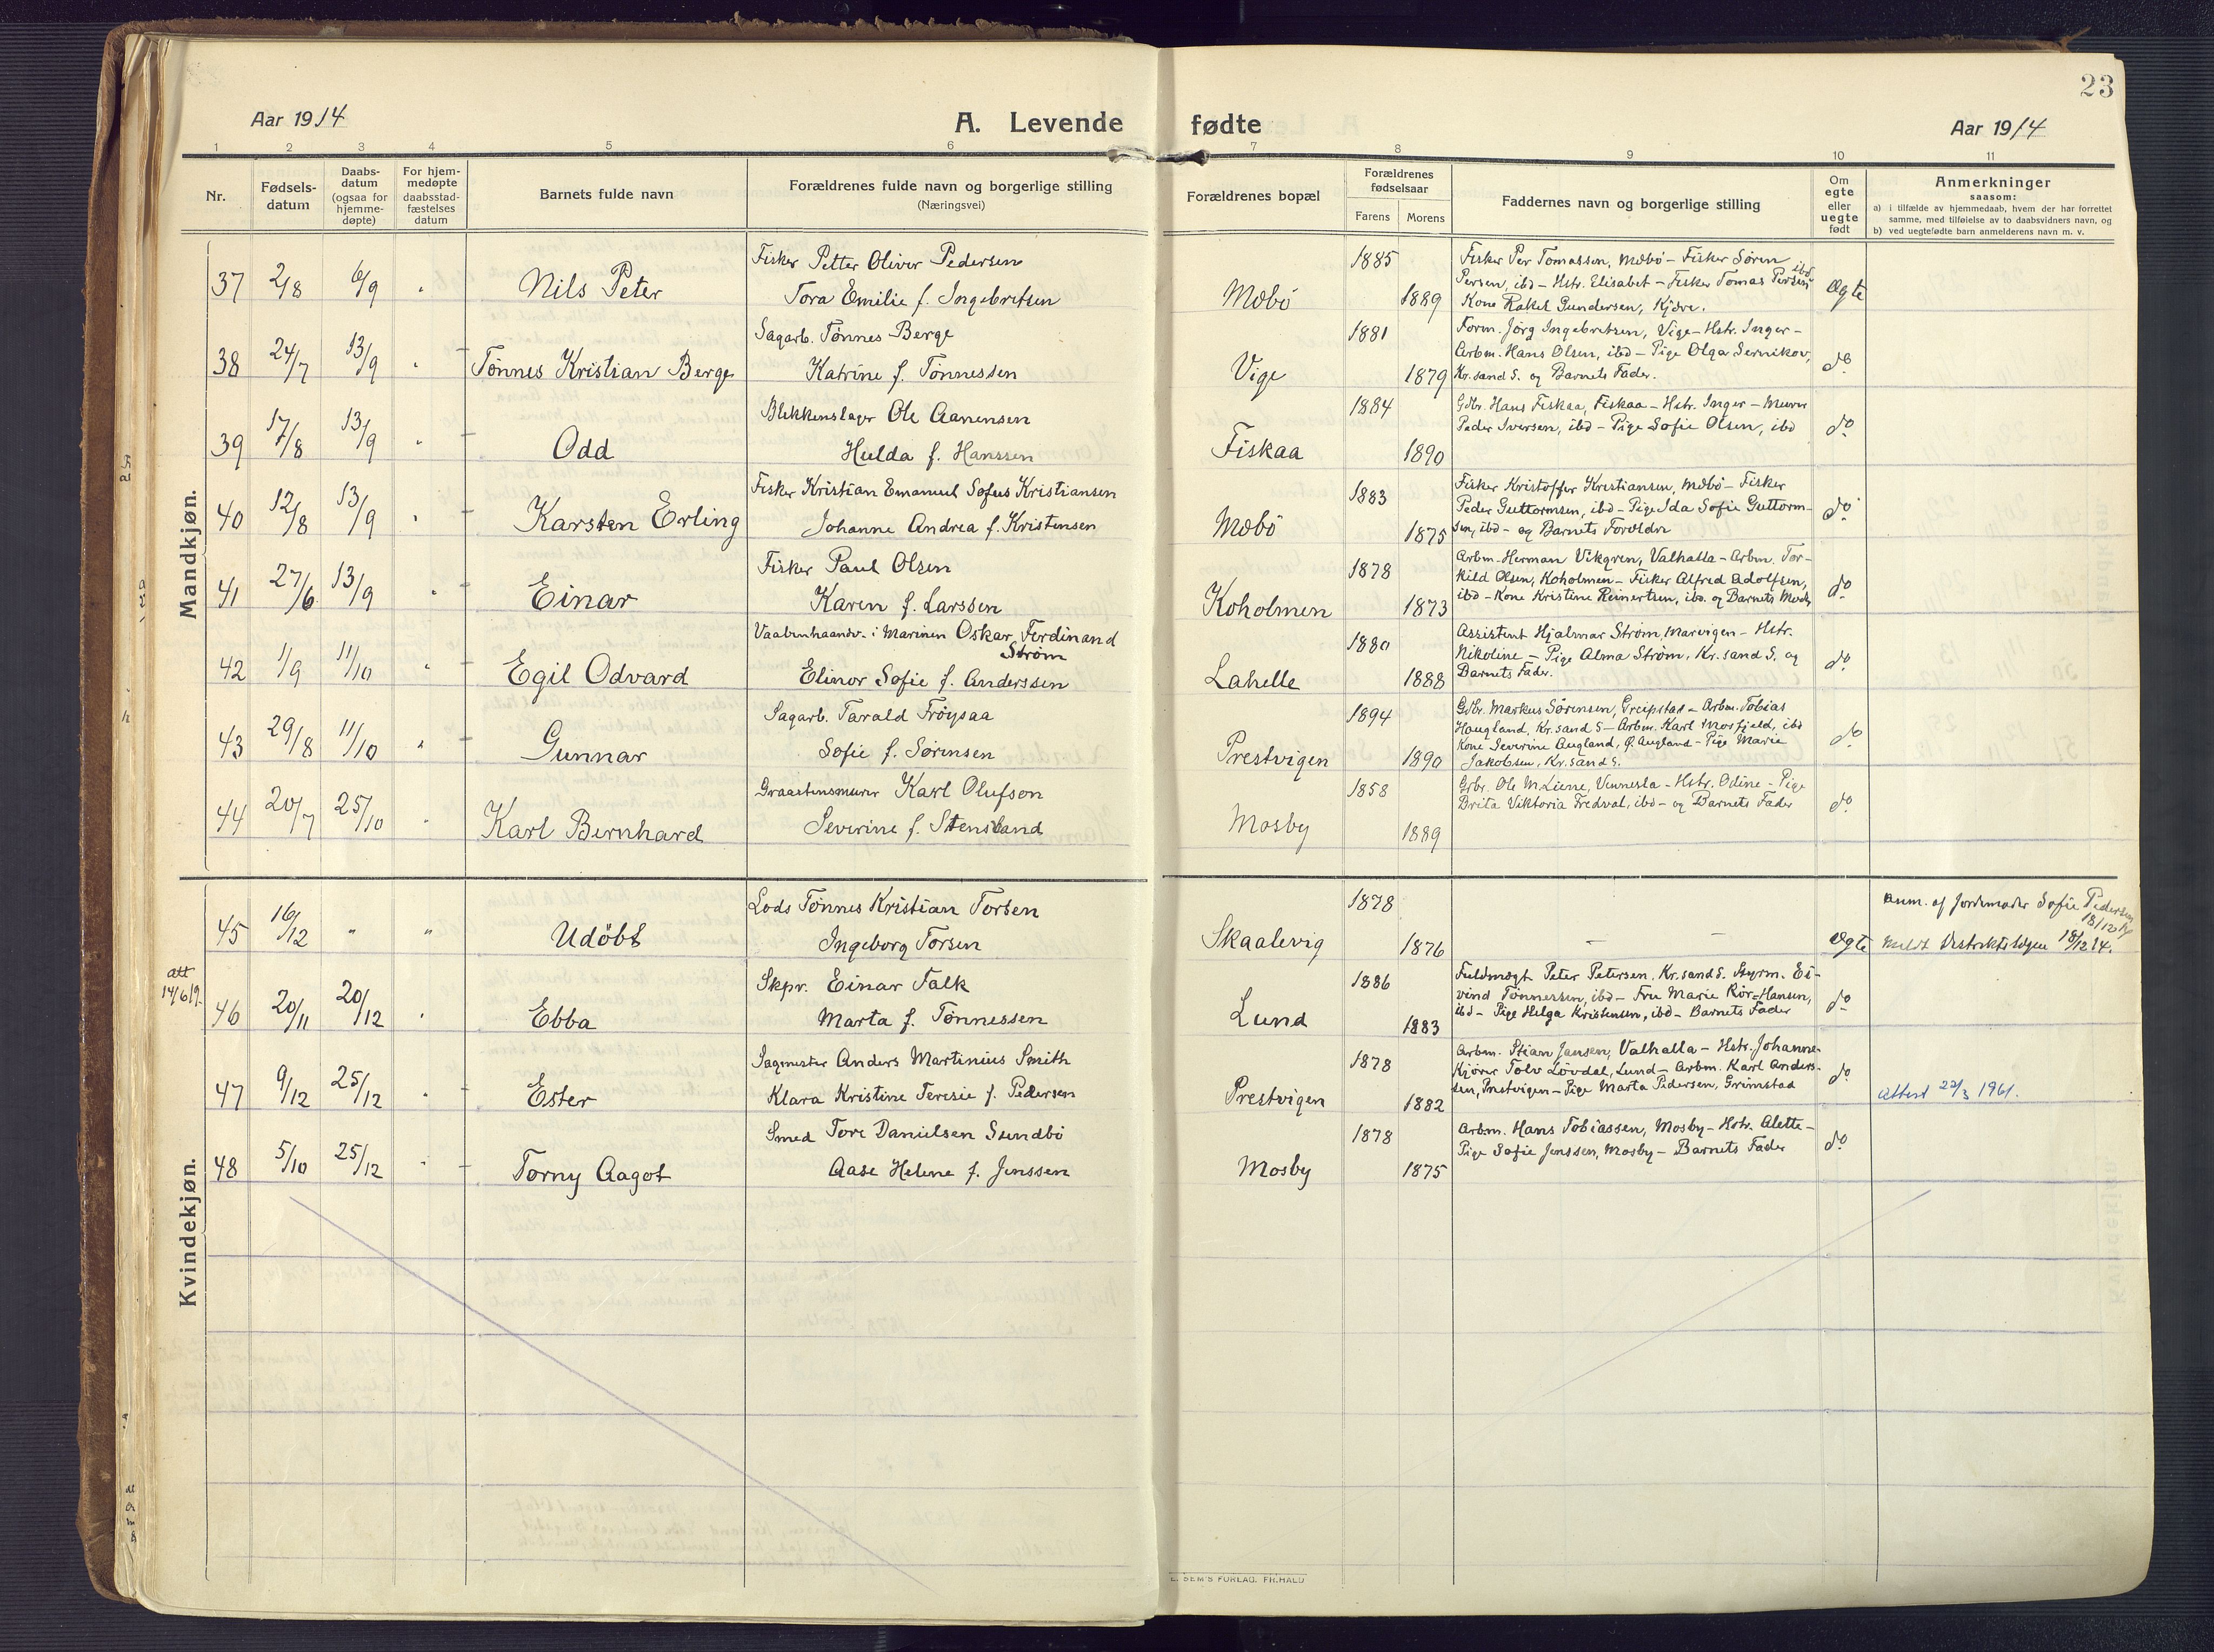 23
Aar 1914
A. Levende fødte
Aar 1914
1 2 3 4 5 6 7 8 9 10 11
Nr.
Fødsels-
datum
Daabs-
datum
(ogsaa for
hjemme-
døpte)
For hjem-
medøpte
daabsstad-
fæstelses
datum
Barnets fulde navn
Forældrenes fulde navn og borgerlige stilling
(Næringsvei)
Forældrenes bopæl
Forældrenes
fødselsaar
Farens Morens
Faddernes navn og borgerlige stilling
Om
egte
eller
uegte
født
Anmerkninger
saasom:
a) i tilfælde av hjemmedaab, hvem der har forrettet
samme, med tilføielse av to daabsvidners navn, og
b) ved uegtefødte barn anmelderens navn m. v.
Mandkjøn.
37 2/8 6/9 " Nils Peter
Fisker Petter Oliver Pedersen
Tora Emilie f. Ingebretsen
Mæbö 1885 1889
Fisker Per Tomassen, Mæbö - Fisker Sören
Persen, ibd - Hstr. Elisabet - Fisker Tomas Persen ibd
Kone Rakel Gundersen, Kjöre.
Ægte
38 24/7 13/9 " Tönnes Kristian Berge
Sagarb. Tönnes Berge
Katrine f. Tönnessen
Vige 1881 1879
Form. Jörg Ingebretsen, Vige - Hstr. Inger -
Arbm. Hans Olsen, ibd - Pige Olga Sernikov,
Kr.sand S. og Barnets Fader.
do
39 17/8 13/9 " Odd
Blikkenslager Ole Aanensen
Hulda f. Hanssen
Fiskaa 1884 1890
Gdbr. Hans Fiskaa, Fiskaa - Hstr. Inger - Murer
Peder Iversen, ibd - Pige Sofie Olsen, ibd
do
40 12/8 13/9 " Karsten Erling
Fisker Kristian Emanuel Sofus Kristiansen
Johanne Andrea f. Kristensen
Mæbö 1883 1875
Fisker Kristoffer Kristiansen, Mæbö - Fisker
Peder Guttormsen, ibd - Pige Ida Sofie Guttorm-
sen, ibd - og Barnets Forældre
do
41 27/6 13/9 " Einar
Fisker Paul Olsen
Karen f. Larssen
Koholmen 1878 1873
Arbm. Herman Vikgren, Valhalla - Arbm. Tor-
kild Olsen, Koholmen - Fisker Alfred Adolfsen,
ibd - Kone Kristine Reinertsen, ibd. og Barnets Moder
do
42 1/9 11/10 " Egil Odvard
Vaabenhaandv. i Marinen Oskar Ferdinand
Ström
Elinor Sofie f. Anderssen
Lahelle 1880 1888
Assistent Hjalmar Ström, Marvigen - Hstr.
Nikoline - Pige Alma Ström, Kr.sand S. og
Barnets Fader.
do
43 29/8 11/10 " Gunnar
Sagarb. Tarald Fröysaa
Sofie f. Sörensen
Prestvigen 1894 1890
Gdbr. Markus Sörensen, Greipstad - Arbm. Tobias
Haugland, Kr.sand S - Arbm. Karl Mosfjeld, ibd
Kone Severine Augland, Ø. Augland - Pige Marie
Jakobsen, Kr.sand S.
do
44 20/7 25/10 " Karl Bernhard
Graastensmurer Karl Olufson
Severine f. Stensland
Mosby 1858 1889
Grbr. Ole M. Liene, Vennesla - Hstr. Odine - Pige
Brita Viktoria Fredval, ibd - og Barnets Fader
do
Kvindekjøn.
45 16/12 " " Udöbt
Lods Tönnes Kristian Torsen
Ingeborg Torsen
Skaalevig 1878 1876
- -
Ægte
Anm. af Jordemoder Sofie Pedersen
18/12 14
Meldt Distriktslægen 18/12 14.
att
14/6 19.
46 20/11 20/12 " Ebba
Skpr. Einar Falk
Marta f. Tönnessen
Lund 1886 1883
Fuldmægt. Peter Petersen, Kr.sand S. Styrm. Ei-
vind Tönnessen, ibd - Fru Marie Rör=Hansen,
ibd - Pige Helga Kristensen, ibd - Barnets Fader
do
47 9/12 25/12 " Ester
Sagmester Anders Martinius Smith
Klara Kristine Teresie f. Pedersen
Prestvigen 1878 1882
Arbm. Stian Jansen, Valhalla - Hstr. Johanne -
Kjörer Tolv Lövdal, Lund - Arbm. Karl Anders-
sen, Prestvigen - Pige Marta Pedersen, Grimstad
do
Attest 22/3 1961.
48 5/10 25/12 " Torny Aagot
Smed Tore Danielsen Sundbö
Aase Helene f. Jenssen
Mosby 1878 1875
Arbm. Hans Tobiassen, Mosby - Hstr. Alette -
Pige Sofie Jenssen, Mosby - Barnets Fader
do
E. SEM'S FORLAG. FR.HALD